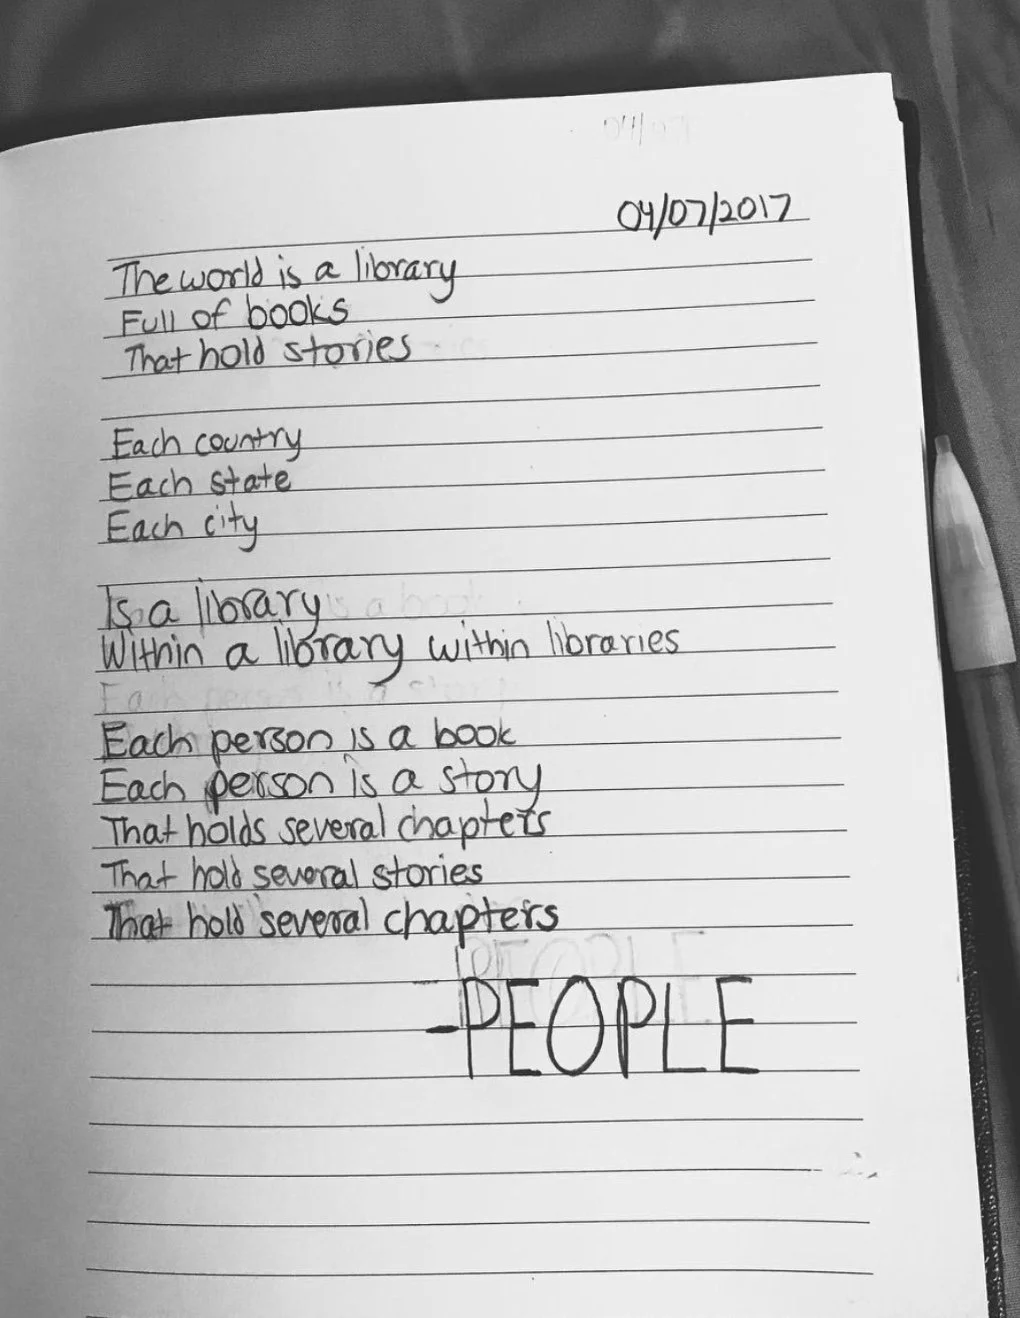 04/07/2017
The world is a library
Full of books
That hold stories
Each country
Each state
Each city
Is a library
Within a library within libraries
Each person is a book
Each person is a story
That holds several chapters
That hold several stories
That hold several chapters
-PEOPLE